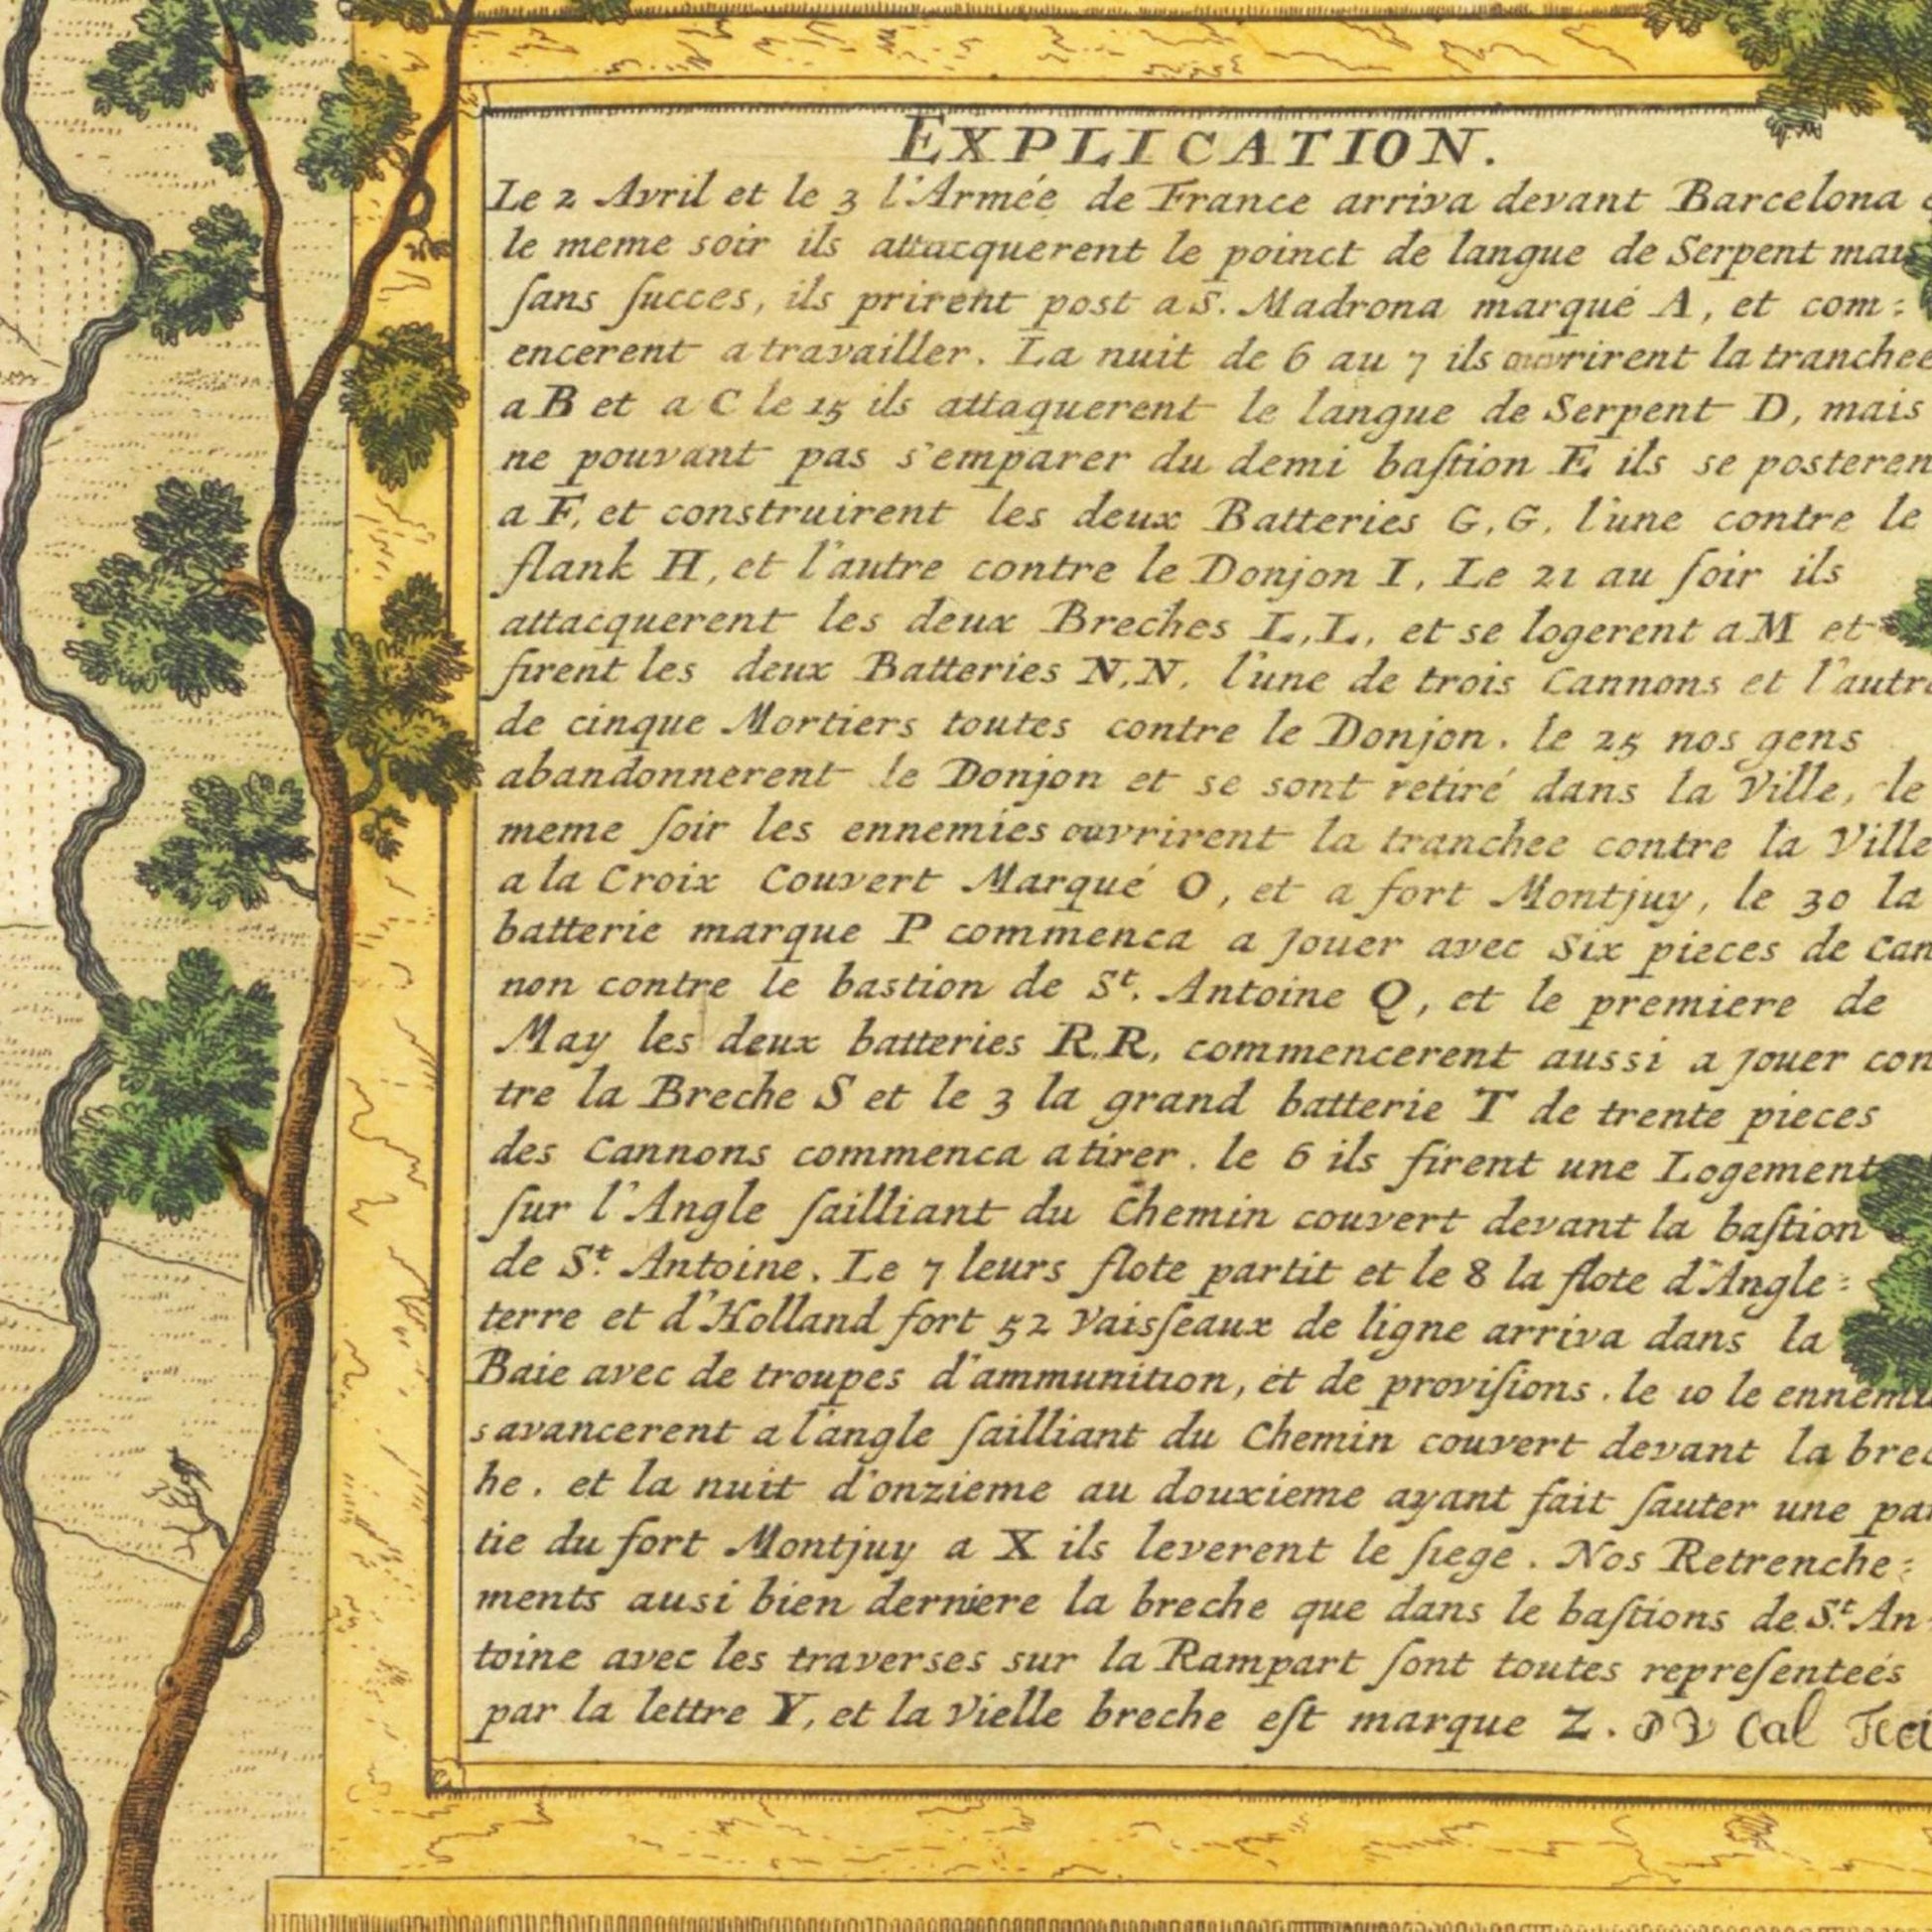 EXPLICATION.
Le 2 Avril et le 3 l'Armée de France arriva devant Barcelona
le meme soir ils attacquerent le poinct de langue de Serpent mais
ſans ſucces, ils prirent post a S. Madrona marqué A, et com:
encerent a travailler. La nuit de 6 au 7 ils ouvrirent la tranchee
a B et a C le 15 ils attaquerent le langue de Serpent D, mais
ne pouvant pas s'emparer du demi baſtion E ils se posteren
a F, et construirent les deux Batteries G, G, l'une contre le
flank H, et l'autre contre le Donjon I, Le 21 au ſoir ils
attacquerent les deux Breches L, L, et se logerent a M et
firent les deux Batteries N, N, l'une de trois Cannons et l'autre
de cinque Mortiers toutes contre le Donjon. le 25 nos gens
abandonnerent le Donjon et se sont retiré dans la Ville, le
meme ſoir les ennemies ouvrirent la tranchee contre la Ville
a la Croix Couvert Marqué O, et a fort Montjuy, le 30 la
batterie marque P commenca a Jouer avec Six pieces de Can
non contre le bastion de St. Antoine Q, et le premiere de
May les deux batteries R.R, commencerent aussi a Jouer con
tre la Breche S et le 3 la grand batterie T de trente pieces
des Cannons commenca a tirer. le 6 ils firent une Logement
ſur l'Angle ſailliant du Chemin couvert devant la baſtion
de St. Antoine. Le 7 leurs flote partit et le 8 la flote d'Angle:
terre et d'Holland fort 52 Vaisſeaux de ligne arriva dans la
Baie avec de troupes d'ammunition, et de proviſions. le 10 le ennemi
s avancerent a l'angle ſailliant du Chemin couvert devant la brec
he. et la nuit d'onzieme au douxieme ayant fait ſauter une par
tie du fort Montjuy a X ils leverent le ſiege. Nos Retrenche:
ments ausi bien derniere la breche que dans le baſtions de St. An
toine avec les traverses sur la Rampart ſont toutes repreſenteés
par la lettre Y, et la Vielle breche eſt marque Z. Cal